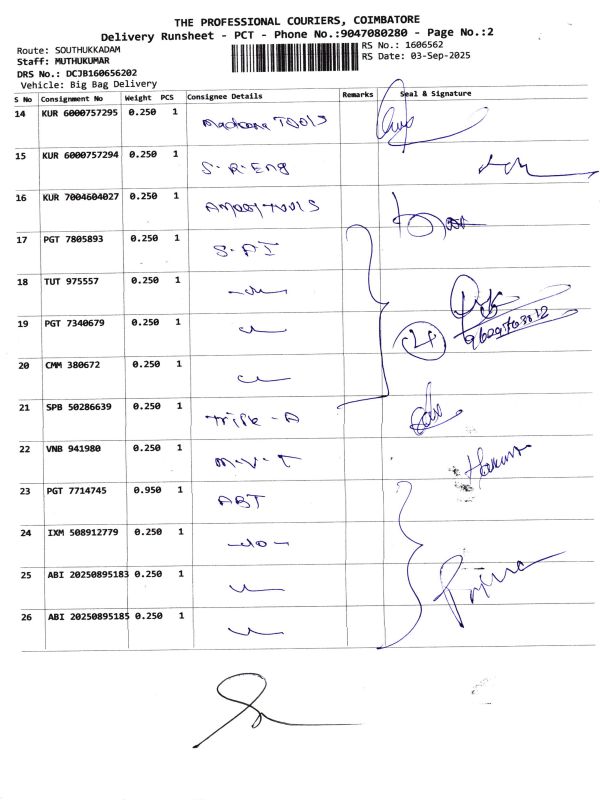 THE PROFESSIONAL COURIERS, COIMBATORE
Delivery Runsheet - PCT - Phone No.:9047080280 - Page No.:2
Route: SOUTHUKKADAM
Staff: MUTHUKUMAR
DRS No.: DCJB160656202
Vehicle: Big Bag Delivery
RS No.: 1606562
RS Date: 03-Sep-2025
S No Consignment No Weight PCS Consignee Details Remarks Seal & Signature
14 KUR 6000757295 0.250 1 TOOLS
15 KUR 6000757294 0.250 1 S-R-Eng
16 KUR 7004604027 0.250 1 TOOLS
17 PGT 7805893 0.250 1 S-AI
18 TUT 975557 0.250 1
19 PGT 7340679 0.250 1
20 CMM 380672 0.250 1
21 SPB 50286639 0.250 1 Triple-A
22 VNB 941980 0.250 1 M-V-T
23 PGT 7714745 0.950 1 ABT
24 IXM 508912779 0.250 1 -do-
25 ABI 20250895183 0.250 1
26 ABI 20250895185 0.250 1